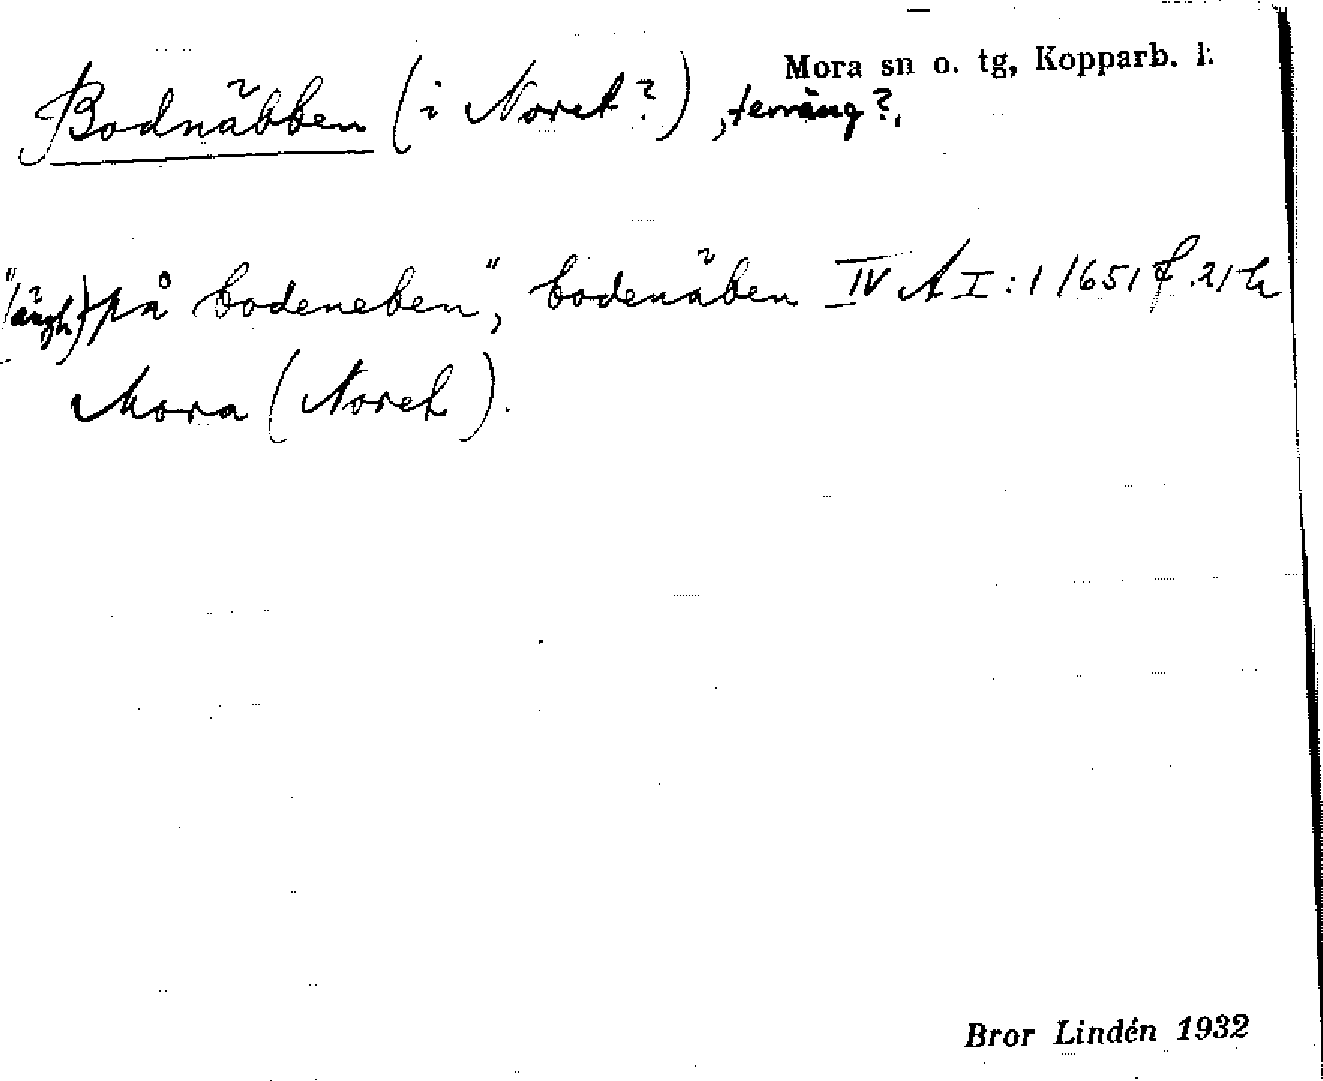 Mora sn o. tg, Kopparb. l.
Bodnäbben (i Noret?), temäng?.
"(ängh) på bodeneben", bodenäben IV A I:1/651 f. 21 h
Mora (Noret).
Bror Lindén 1932